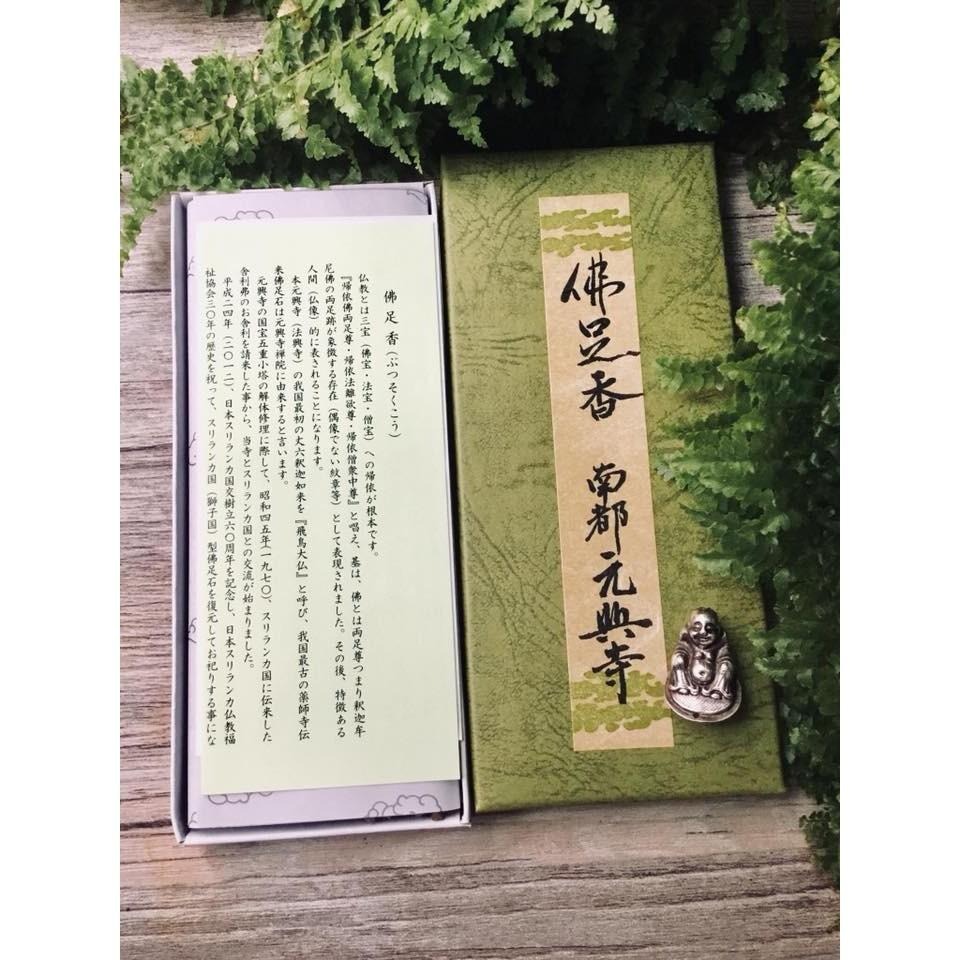 佛足香（ぶつそくこう）
仏教とは三宝（佛宝・法宝・僧宝）への帰依が根本です。
『帰依佛両足尊・帰依法離欲尊・帰依僧衆中尊』と唱え、基は、佛とは両足尊つまり釈迦牟
尼佛の両足跡が象徴する存在（偶像でない紋章等）として表現されました。その後、特徴ある
人間（仏像）的に表されることになります。
本元興寺（法興寺）の我国最初の丈六釈迦如来を『飛鳥大仏』と呼び、我国最古の薬師寺伝
来佛足石は元興寺禅院に由来すると言います。
元興寺の国宝五重小塔の解体修理に際して、昭和四五年(一九七〇)、スリランカ国に伝来した
舎利弗のお舎利を請来した事から、当寺とスリランカ国との交流が始まりました。
平成二四年（二〇一二）、日本スリランカ国交樹立六〇周年を記念し、日本スリランカ仏教福
祉協会三〇年の歴史を祝って、スリランカ国（獅子国）型佛足石を復元してお祀りする事にな
佛足香　南都元興寺